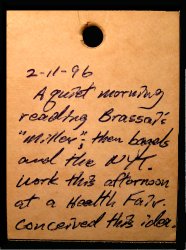 2-11-96
A quiet morning
reading Brassaï's
"Miller", then bagels
and the NYT.
Work this afternoon
at a Health Fair.
Conceived this idea.